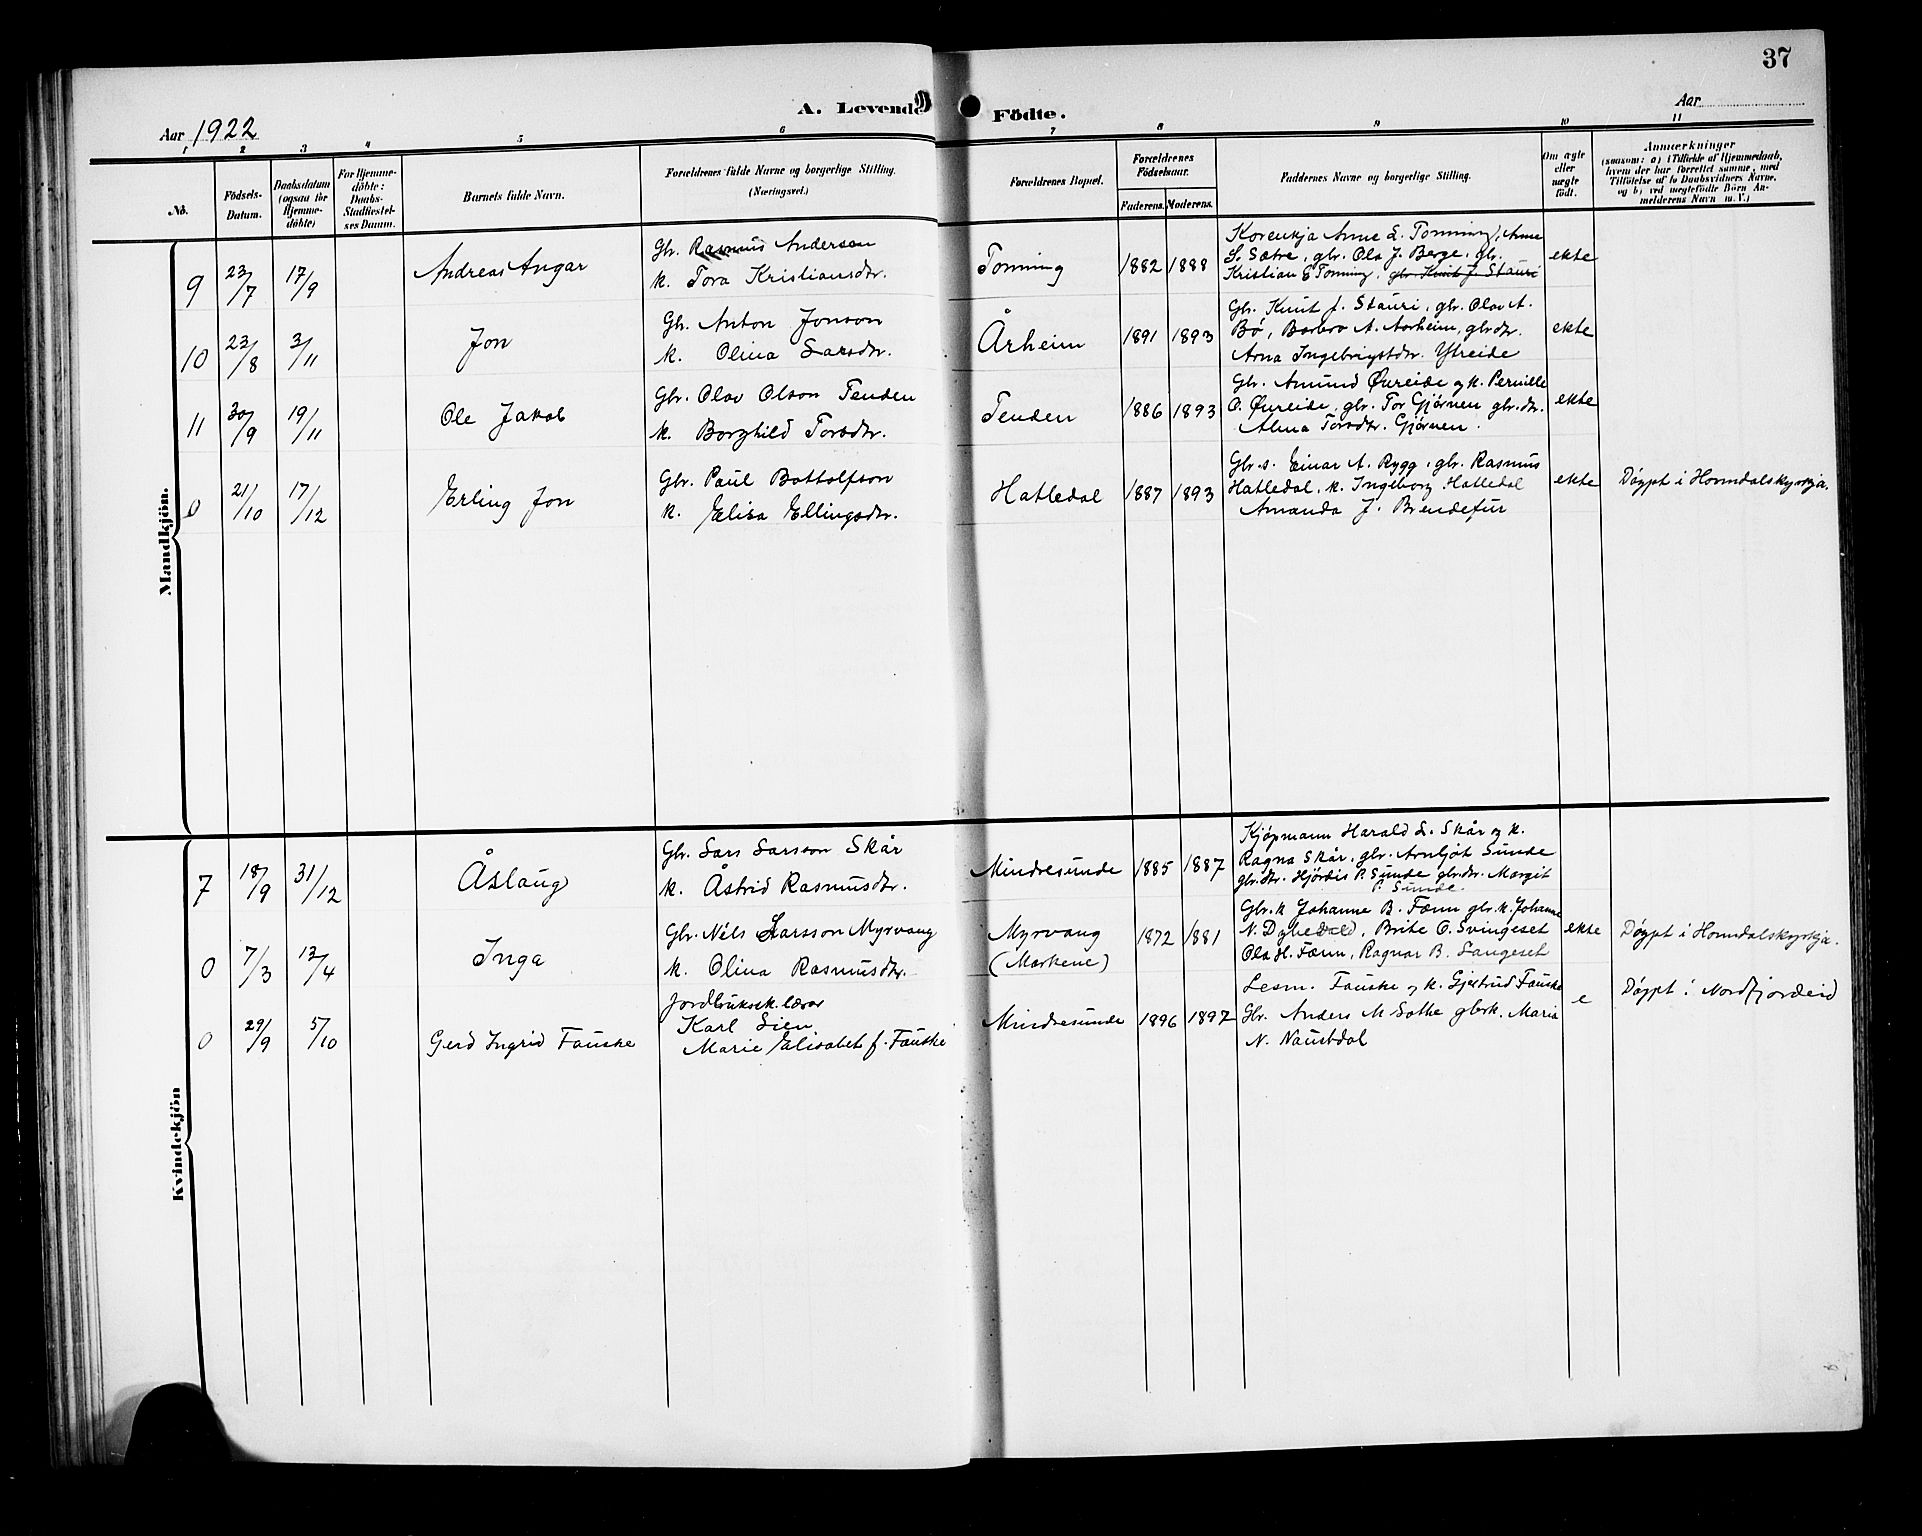 37
A. Levende Födte.
Aar 1922
Aar
1 2 3 4 5 6 7 8 9 10 11
No.
Födsels-Datum.
Daabsdatum (ogsaa for Hjemme-döbte)
For Hjemme-döbte: Daabs-Stadfæstel-ses Datum.
Barnets fulde Navn.
Forældrenes fulde Navne og borgerlige Stilling. (Næringsvei.)
Forældrenes Bopæl.
Forældrenes Födselsaar.
Faderens. Moderens.
Faddernes Navne og borgerlige Stilling.
Om ægte eller uægte födt.
Anmærkninger
(saasom: a) i Tilfælde af Hjemmedaab, hvem der har forrettet samme, med Tilföielse af to Daabsvidners Navne, og b) ved uægtefödte Börn Anmelderens Navn m. V.)
Mandkjön.
9 23/7 17/9 Andreas Angar
Gbr. Rasmus Anderson
k. Tora Kristiansdtr.
Tonning 1882 1888
Korenkja Anne L. Tonning, Anne
S. Sætre, gbr. Ola J. Berge, gbr.
Kristian E Tonning, gbr. Knut J. Stauri
ekte
10 23/8 3/11 Jon
Gbr. Anton Jonson
k. Olina Larsdtr.
Årheim 1891 1893
Gbr. Knut J. Stauri, gbr. Olav A.
Bö, Barbro A. Aarheim, gbrdtr.
Arna Ingebrigtsdtr. Ytreide
ekte
11 30/9 19/11 Ole Jakob
Gbr. Olav Olson Tenden
k. Borghild Torsdtr.
Tenden 1886 1893
Gbr. Amund Øvreide og k. Pernille
O. Øvreide, gbr. Tor Gjørven gbr.dtr.
Alma Torsdtr. Gjørven.
ekte
0 21/10 17/12 Erling Jon
Gbr. Paul Bottolfson
k. Elisa Ellingsdtr.
Hatledal 1887 1893
Gbr.s. Einar A. Rygg, gbr. Rasmus
Hatledal, k. Ingeborg Hatledal
Amanda J. Brendefur
ekte
Döypt i Horndalskyrkja.
Kvindekjön
7 18/9 31/12 Åslaug
Gbr. Lars Larsson Skår
k. Åstrid Rasmusdtr.
Mindresunde 1885 1887
Kjøpmann Harald L. Skår og k.
Ragna Skår, gbr. Arnljot Sunde
gbr.dtr. Hjördis P. Sunde gbr.dtr. Margit
P. Sunde.
0 7/3 13/4 Inga
Gbr. Nils Larsson Myrvang
k. Olina Rasmusdtr.
Myrvang
(Markene)
1872 1881
Gbr.k Johanne B. Færn gbr.k. Johanne
N. Dybedal, Brite O. Svingeset
Ola H. Færn, Ragnar B. Langeset
ekte
Döypt i Horndalskyrkja.
0 29/9 5/10 Gerd Ingrid Fauske
Jordbruksk. lærar
Karl Lien
Marie Elisabet f. Fauske
Mindresunde 1896 1897
Lesm. Fauske og k. Gjertrud Fauske
Gbr. Anders M Sothe gbrk. Maria
N. Naustdal
e
Döypt i Nordfjordeid